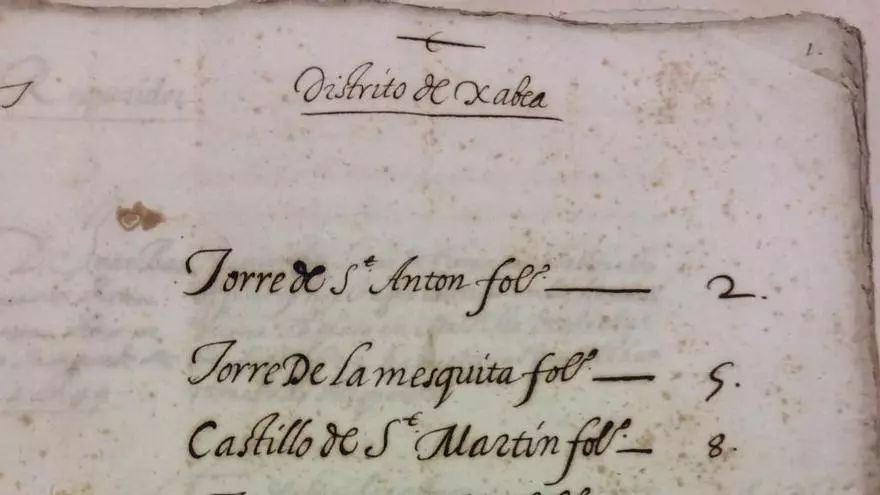 1.
Distrito de Xabea
Torre de S.t Anton fol.s 2.
Torre De la mesquita fol.s 5.
Castillo de S.t Martín fol.s 8.